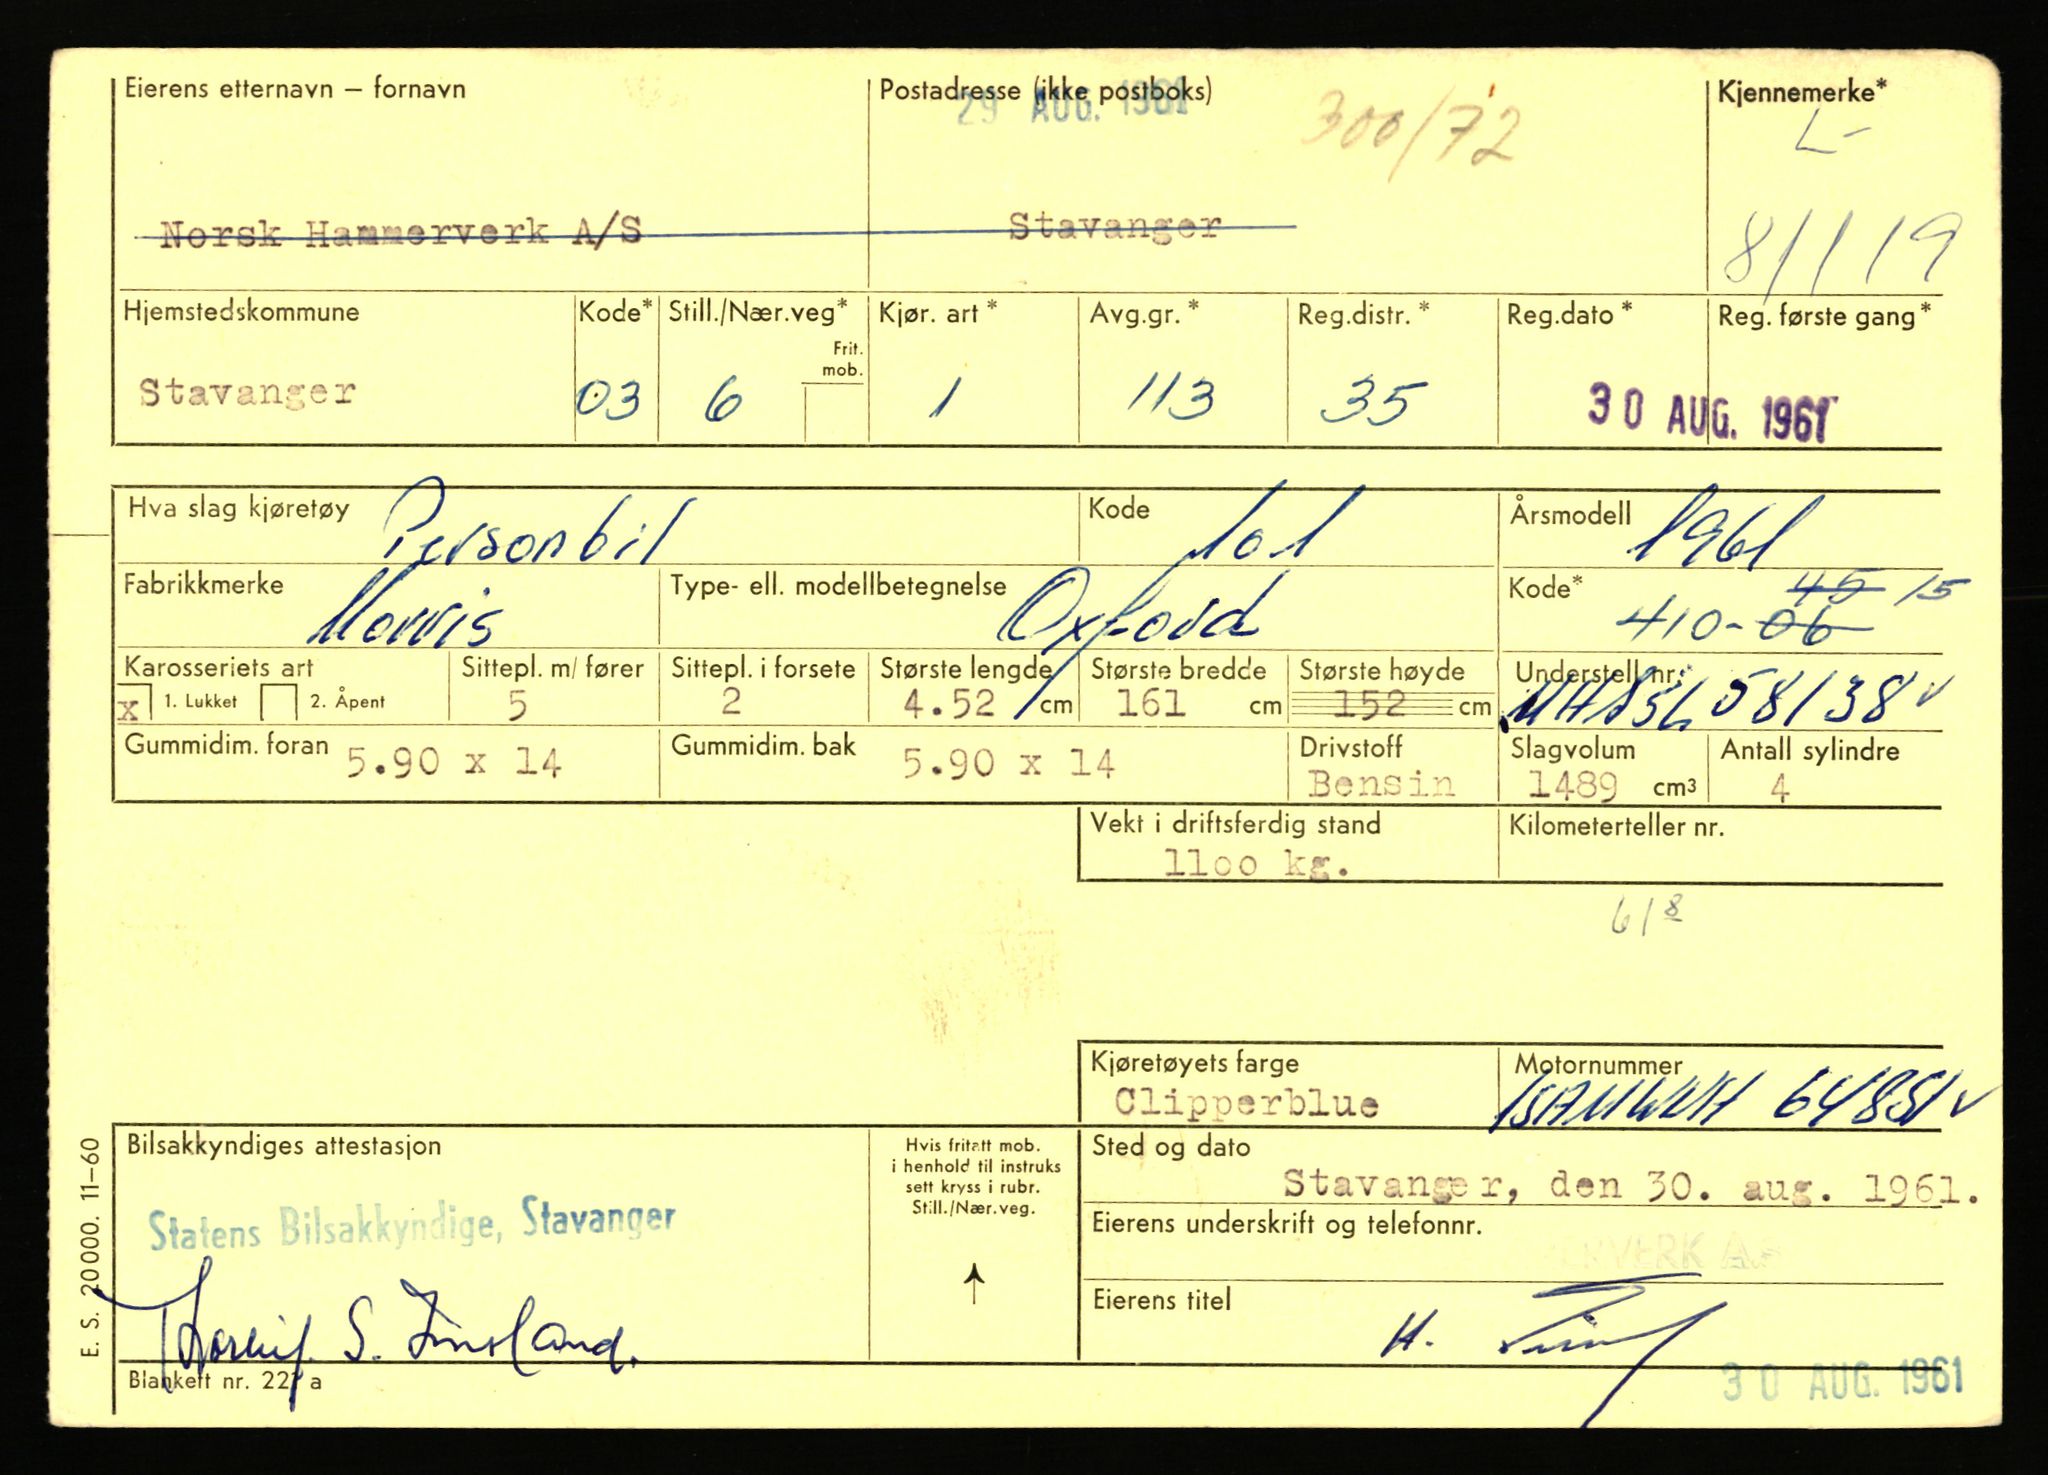 Eierens etternavn – fornavn Postadresse (ikke postboks) Kjennemerke*
29 AUG. 1961 300/72 L-
Norsk Hammerverk A/S Stavanger 81119
Hjemstedskommune Kode* Still./Nær.veg* Kjør. art* Avg.gr.* Reg.distr.* Reg.dato* Reg. første gang*
Frit.
mob.
Stavanger 03 6 1 113 35 30 AUG. 1961
Hva slag kjøretøy Personbil Kode 101 Årsmodell 1961
Fabrikkmerke Morris Type- ell. modellbetegnelse Oxford Kode* 45 15
410-06
Karosseriets art Sittepl. m/ fører Sittepl. i forsete Største lengde Største bredde Største høyde Understell nr.*
x 1. Lukket 2. Åpent 5 2 4.52 cm 161 cm 152 cm 58138
Gummidim. foran 5.90 x 14 Gummidim. bak 5.90 x 14 Drivstoff Slagvolum Antall sylindre
Bensin 1489 cm3 4
Vekt i driftsferdig stand Kilometerteller nr.
1100 kg.
61 8
Kjøretøyets farge Motornummer
Clipperblue 64851
Bilsakkyndiges attestasjon Hvis fritatt mob. Sted og dato
i henhold til instruks
sett kryss i rubr.
Still./Nær.veg.
Stavanger, den 30. aug. 1961.
Statens Bilsakkyndige, Stavanger
Eierens underskrift og telefonnr.
Eierens titel
H.
S.
30 AUG. 1961
Blankett nr. 227 a
E. S. 20000. 11–60